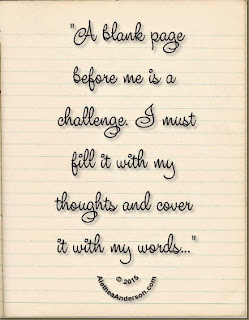 "A blank page
before me is a
challenge. I must
fill it with my
thoughts and cover
it with my words..."
© 2015
AletheaAnderson.com